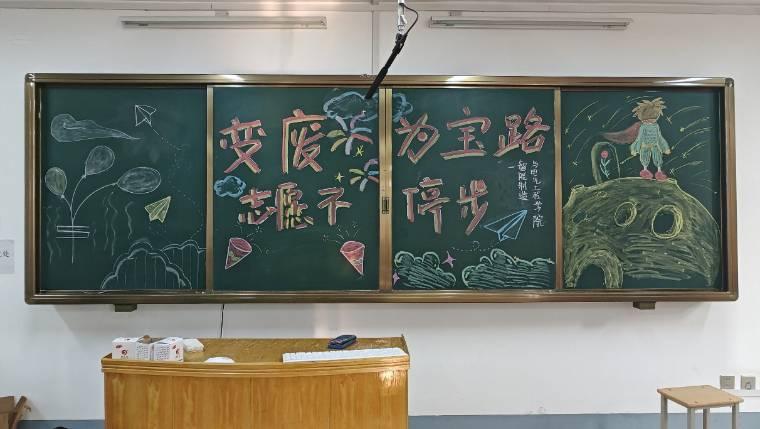 变废为宝路
志愿不停步
—智能制造
与电气工程学院